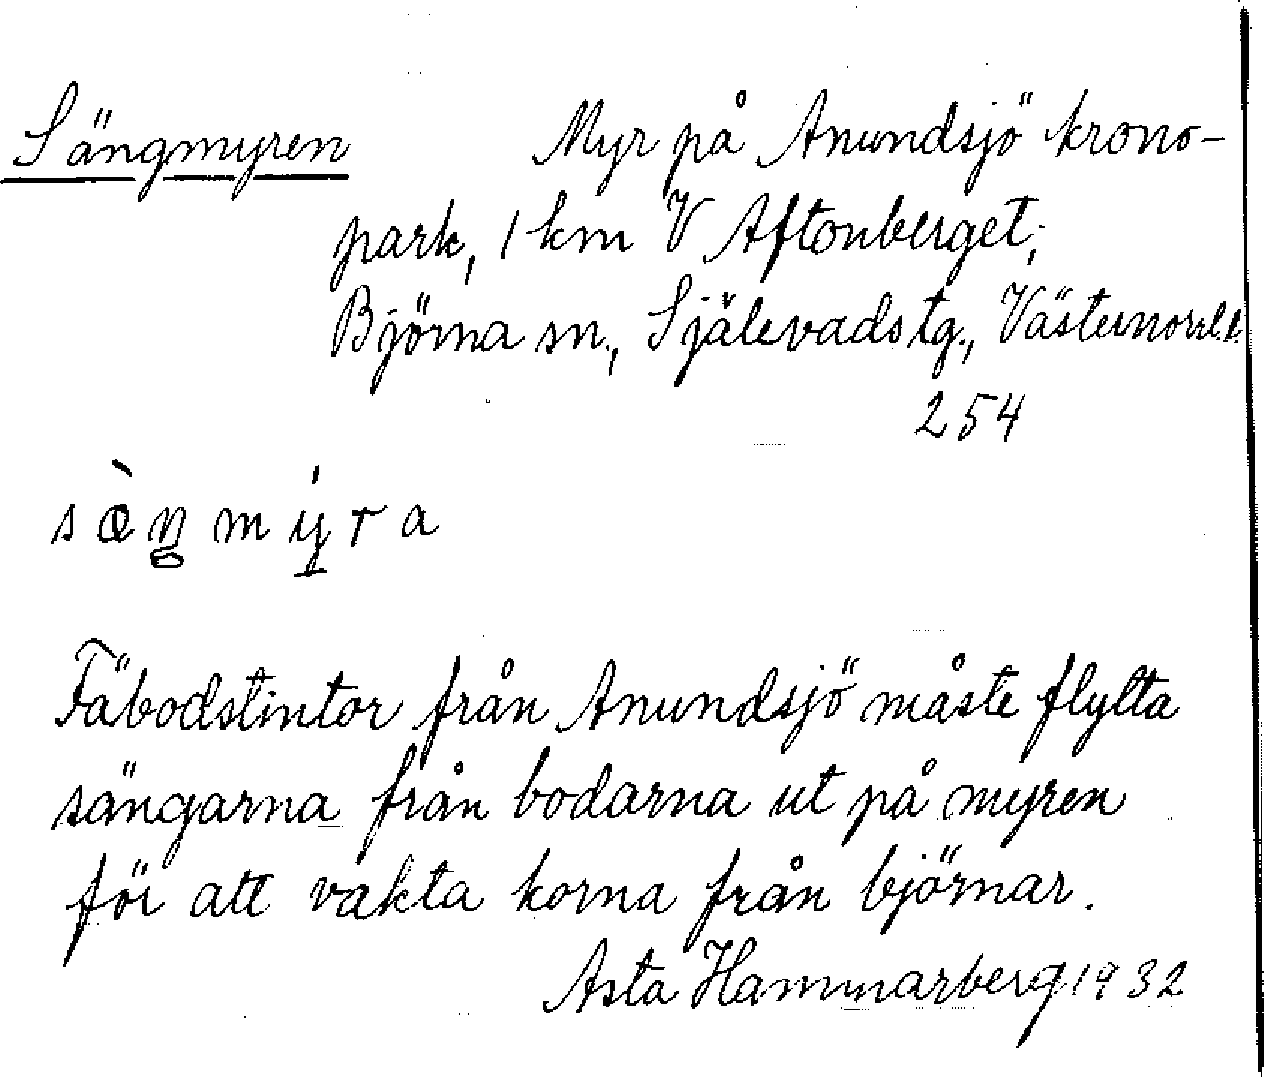 Sängmyren Myr på Anundsjö krono-
park, 1 km V Aftonberget;
Björna sn., Själevads tg., Västernorrl.l.
254
sæ̀ŋmýra
Fäbodstintor från Anundsjö måste flytta
sängarna från bodarna ut på myren
för att vakta korna från björnar.
Asta Hammarberg 1932